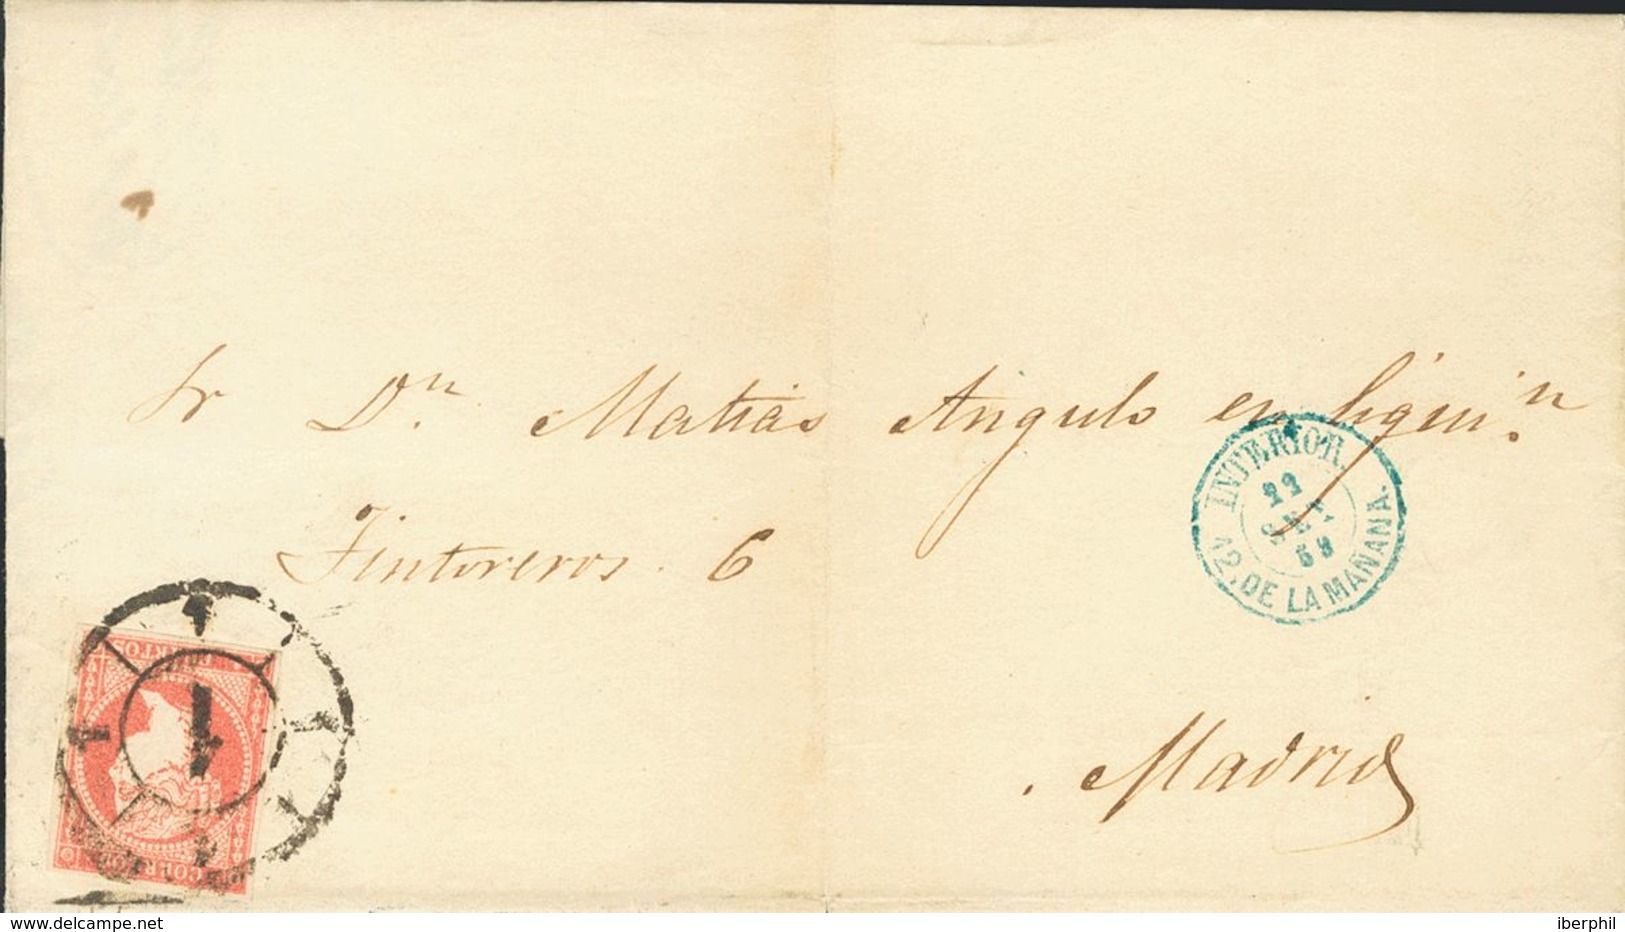 Sr Dn. Matias Angulo en liquin.
Tintoreros. 6
. Madrid
INTERIOR.
22
58
12, DE LA MAÑANA.
CUARTOS
1
CORREOS
delcampe.net
iberphil